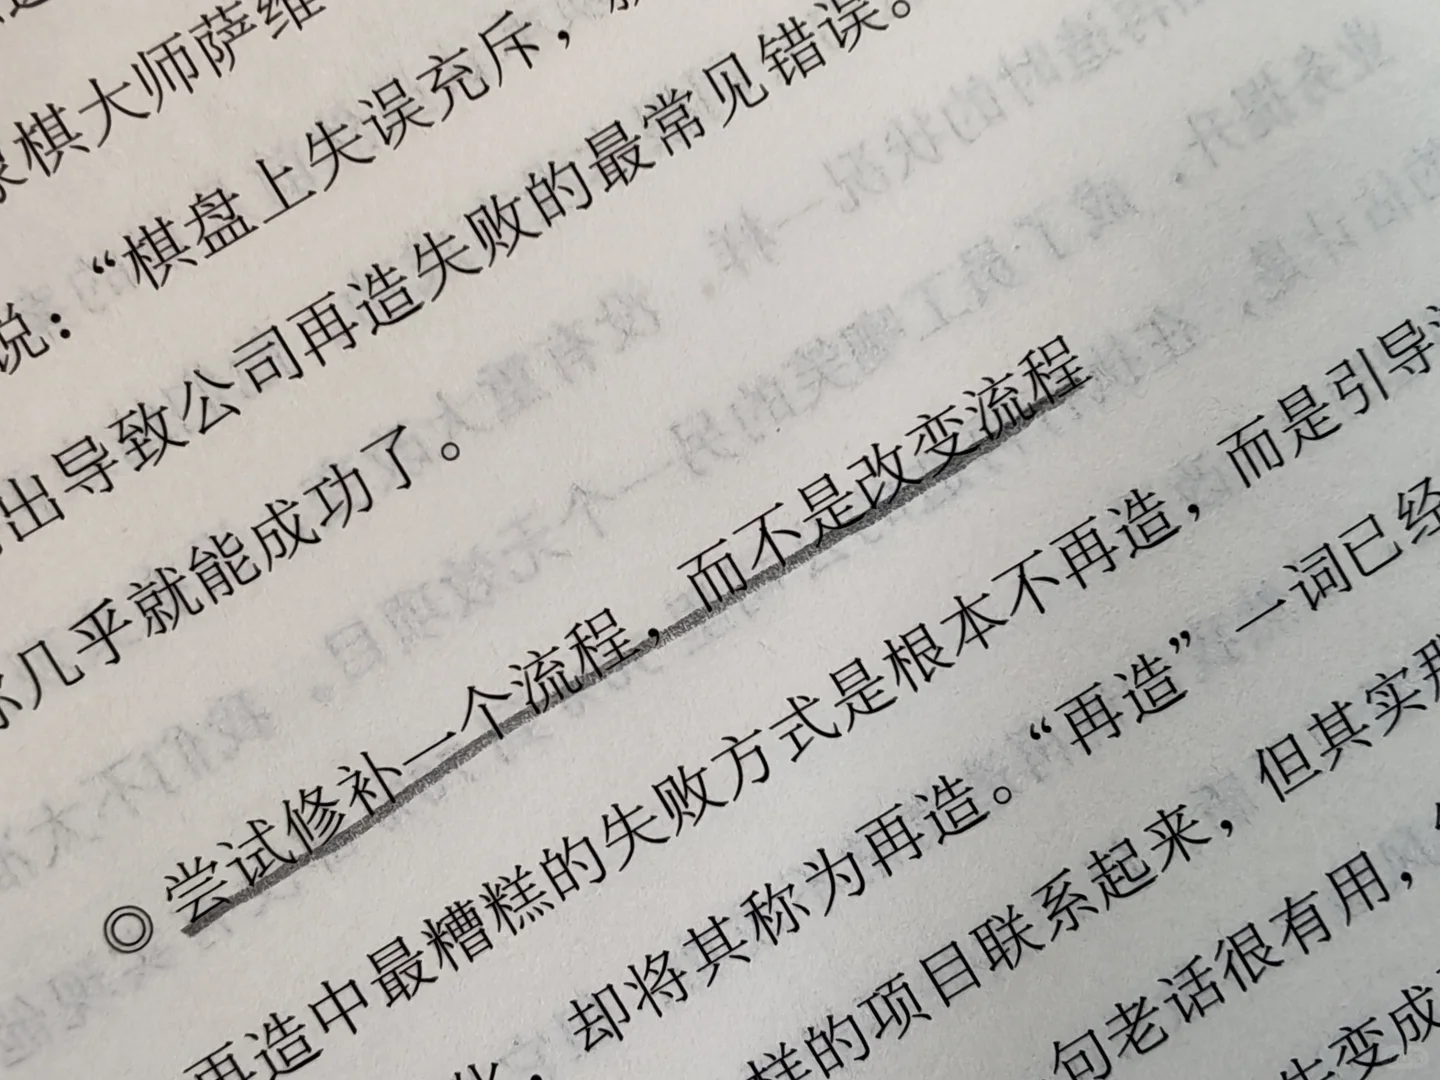 棋大师萨维
说：“棋盘上失误充斥，
出导致公司再造失败的最常见错误。
你几乎就能成功了。
◎ 尝试修补一个流程，而不是改变流程
再造中最糟糕的失败方式是根本不再造，而是引导
却将其称为再造。“再造”一词已经
样的项目联系起来，但其实那
句老话很有用，
变成